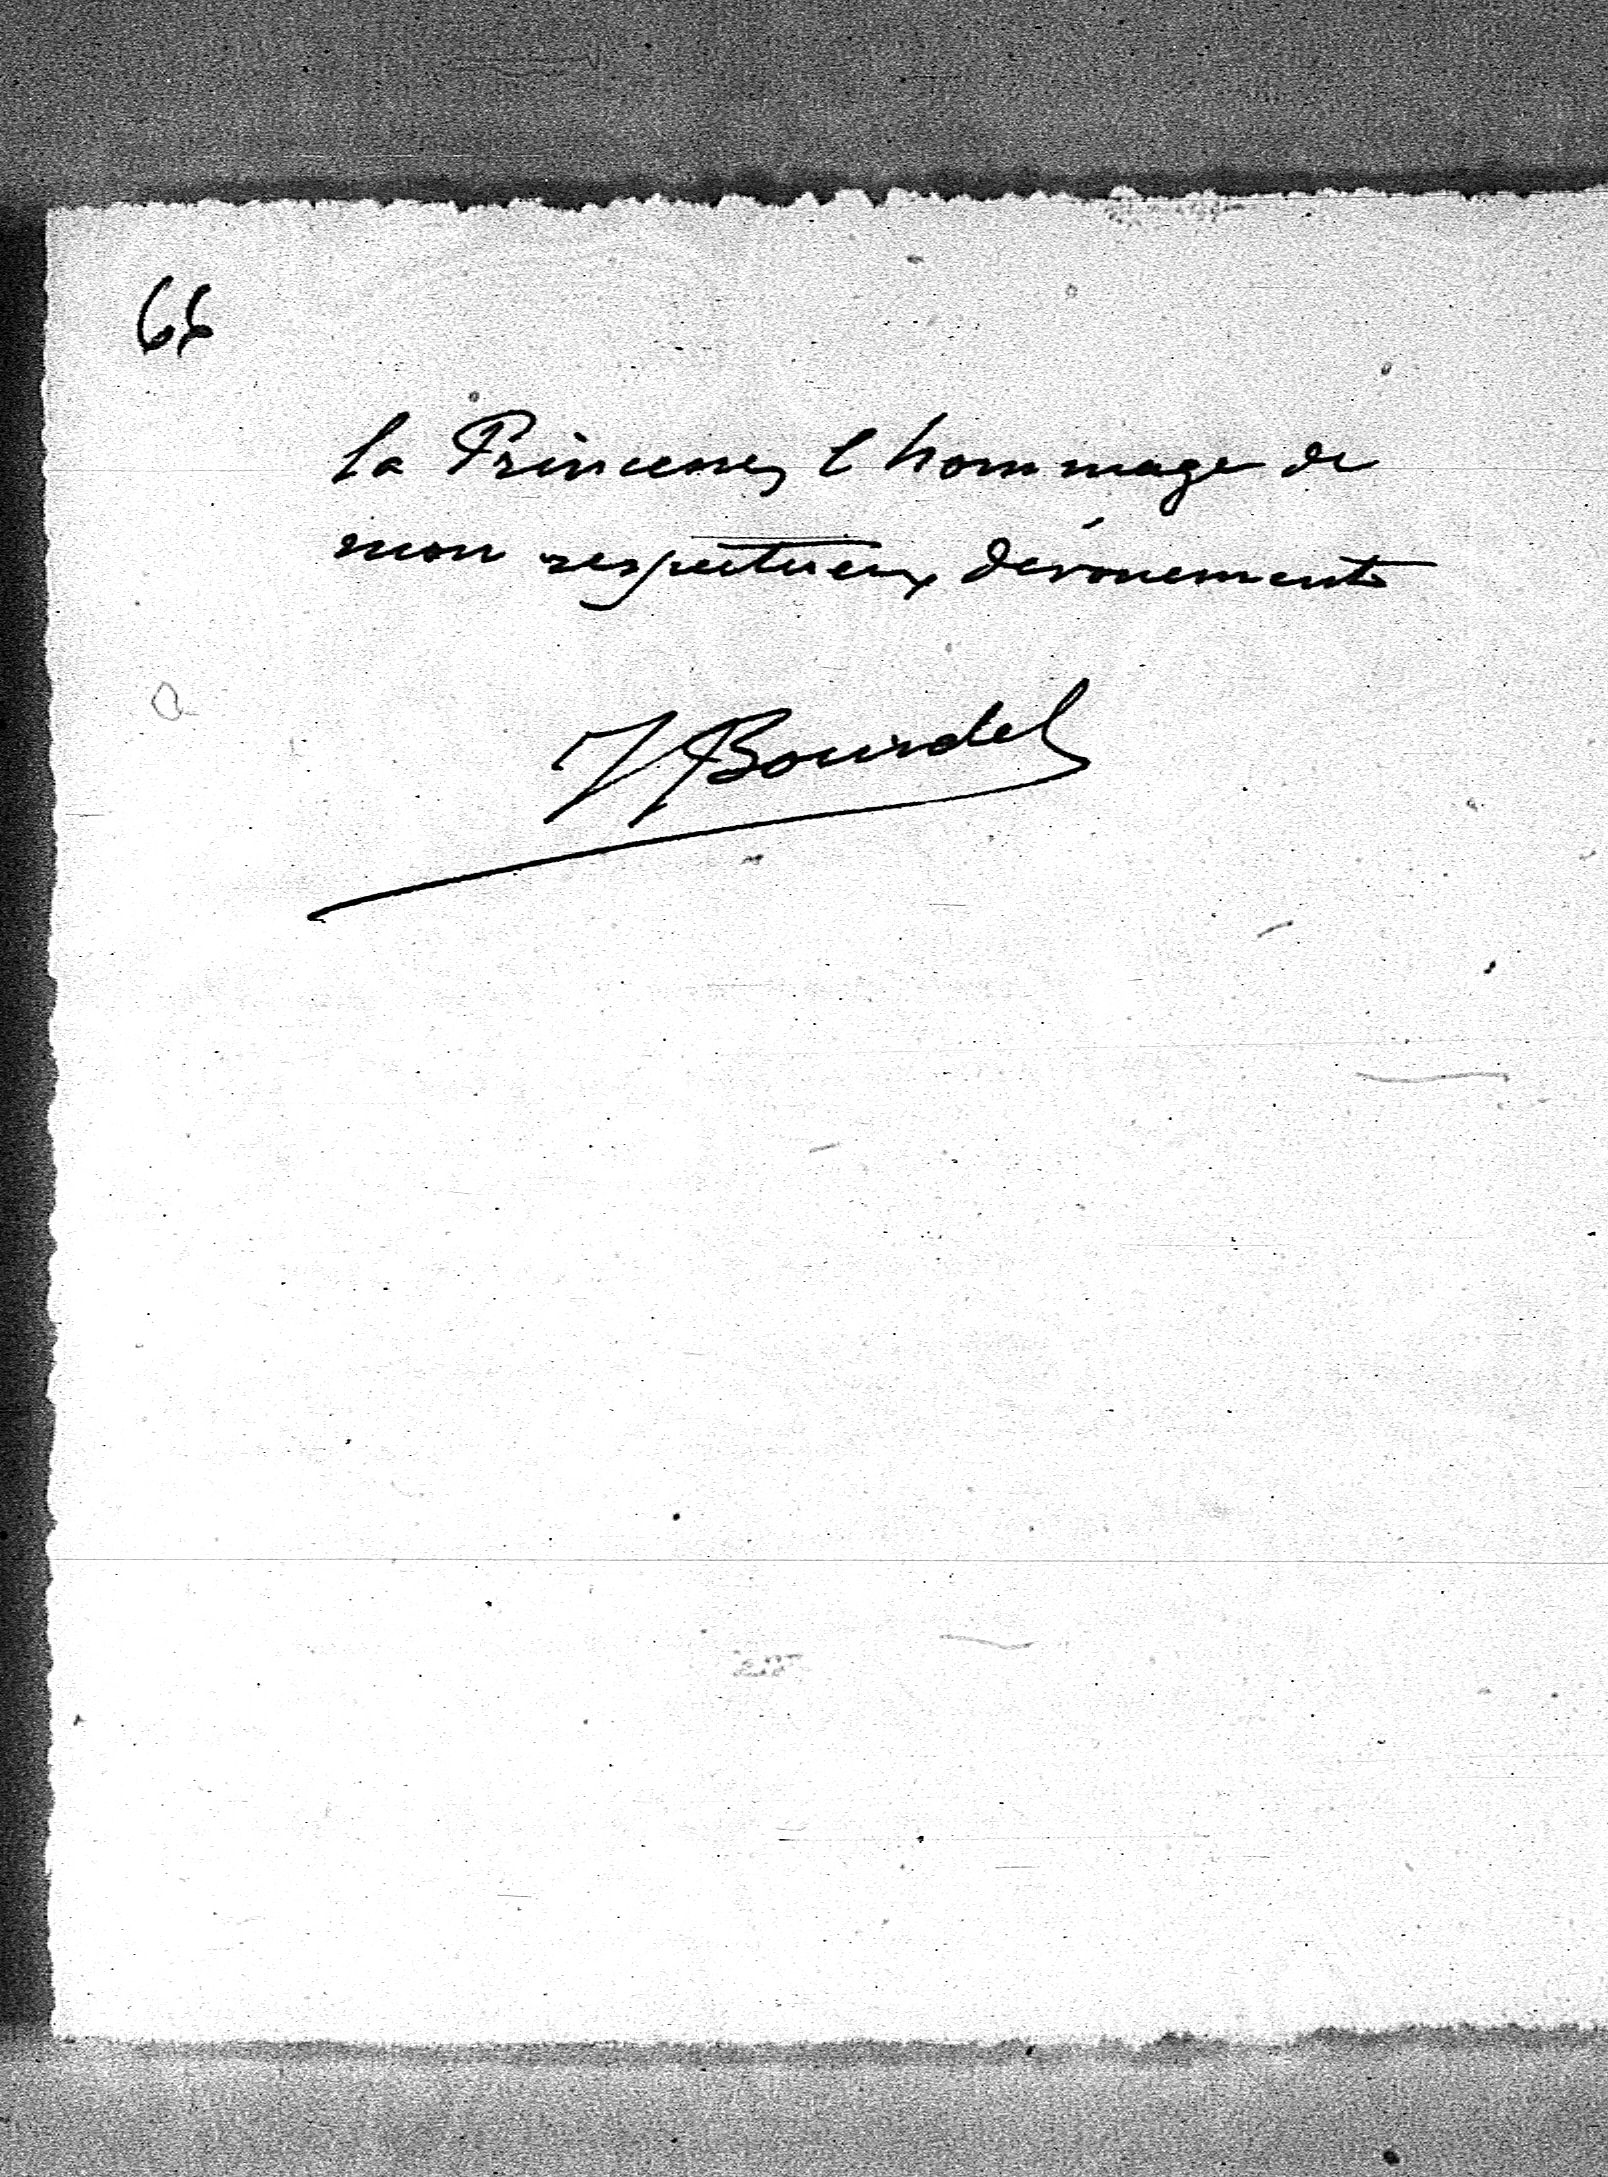 66
la Princesse, l'hommage de
mon respectueux dévouement
J Bourdel